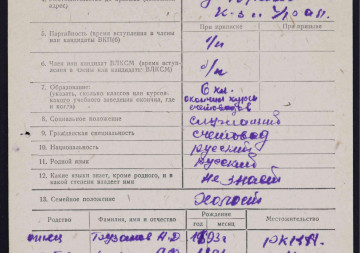 адрес)
При призыве
При приеме
5. Партийность (время вступления в члены
или кандидаты ВКП(б)
б/п
6. Член или кандидат ВЛКСМ (время вступ-
ления в члены или кандидаты ВЛКСМ)
б/п
7. Образование:
(указать, сколько классов или курсов
какого учебного заведения окончил, где
и когда)
6 кл.
окончил курсы
счетоводов
8. Социальное положение
служащий
9. Гражданская специальность
счетовод
10. Национальность
русский
11. Родной язык
русский
12. Какие языки знает, кроме родного, и в
какой степени владеет ими
не знает
13. Семейное положение:
холост
Родство
Фамилия, имя и отчество
Рождение
год
месяц
Местожительство
отец
А.Д.
1893г.
РККА